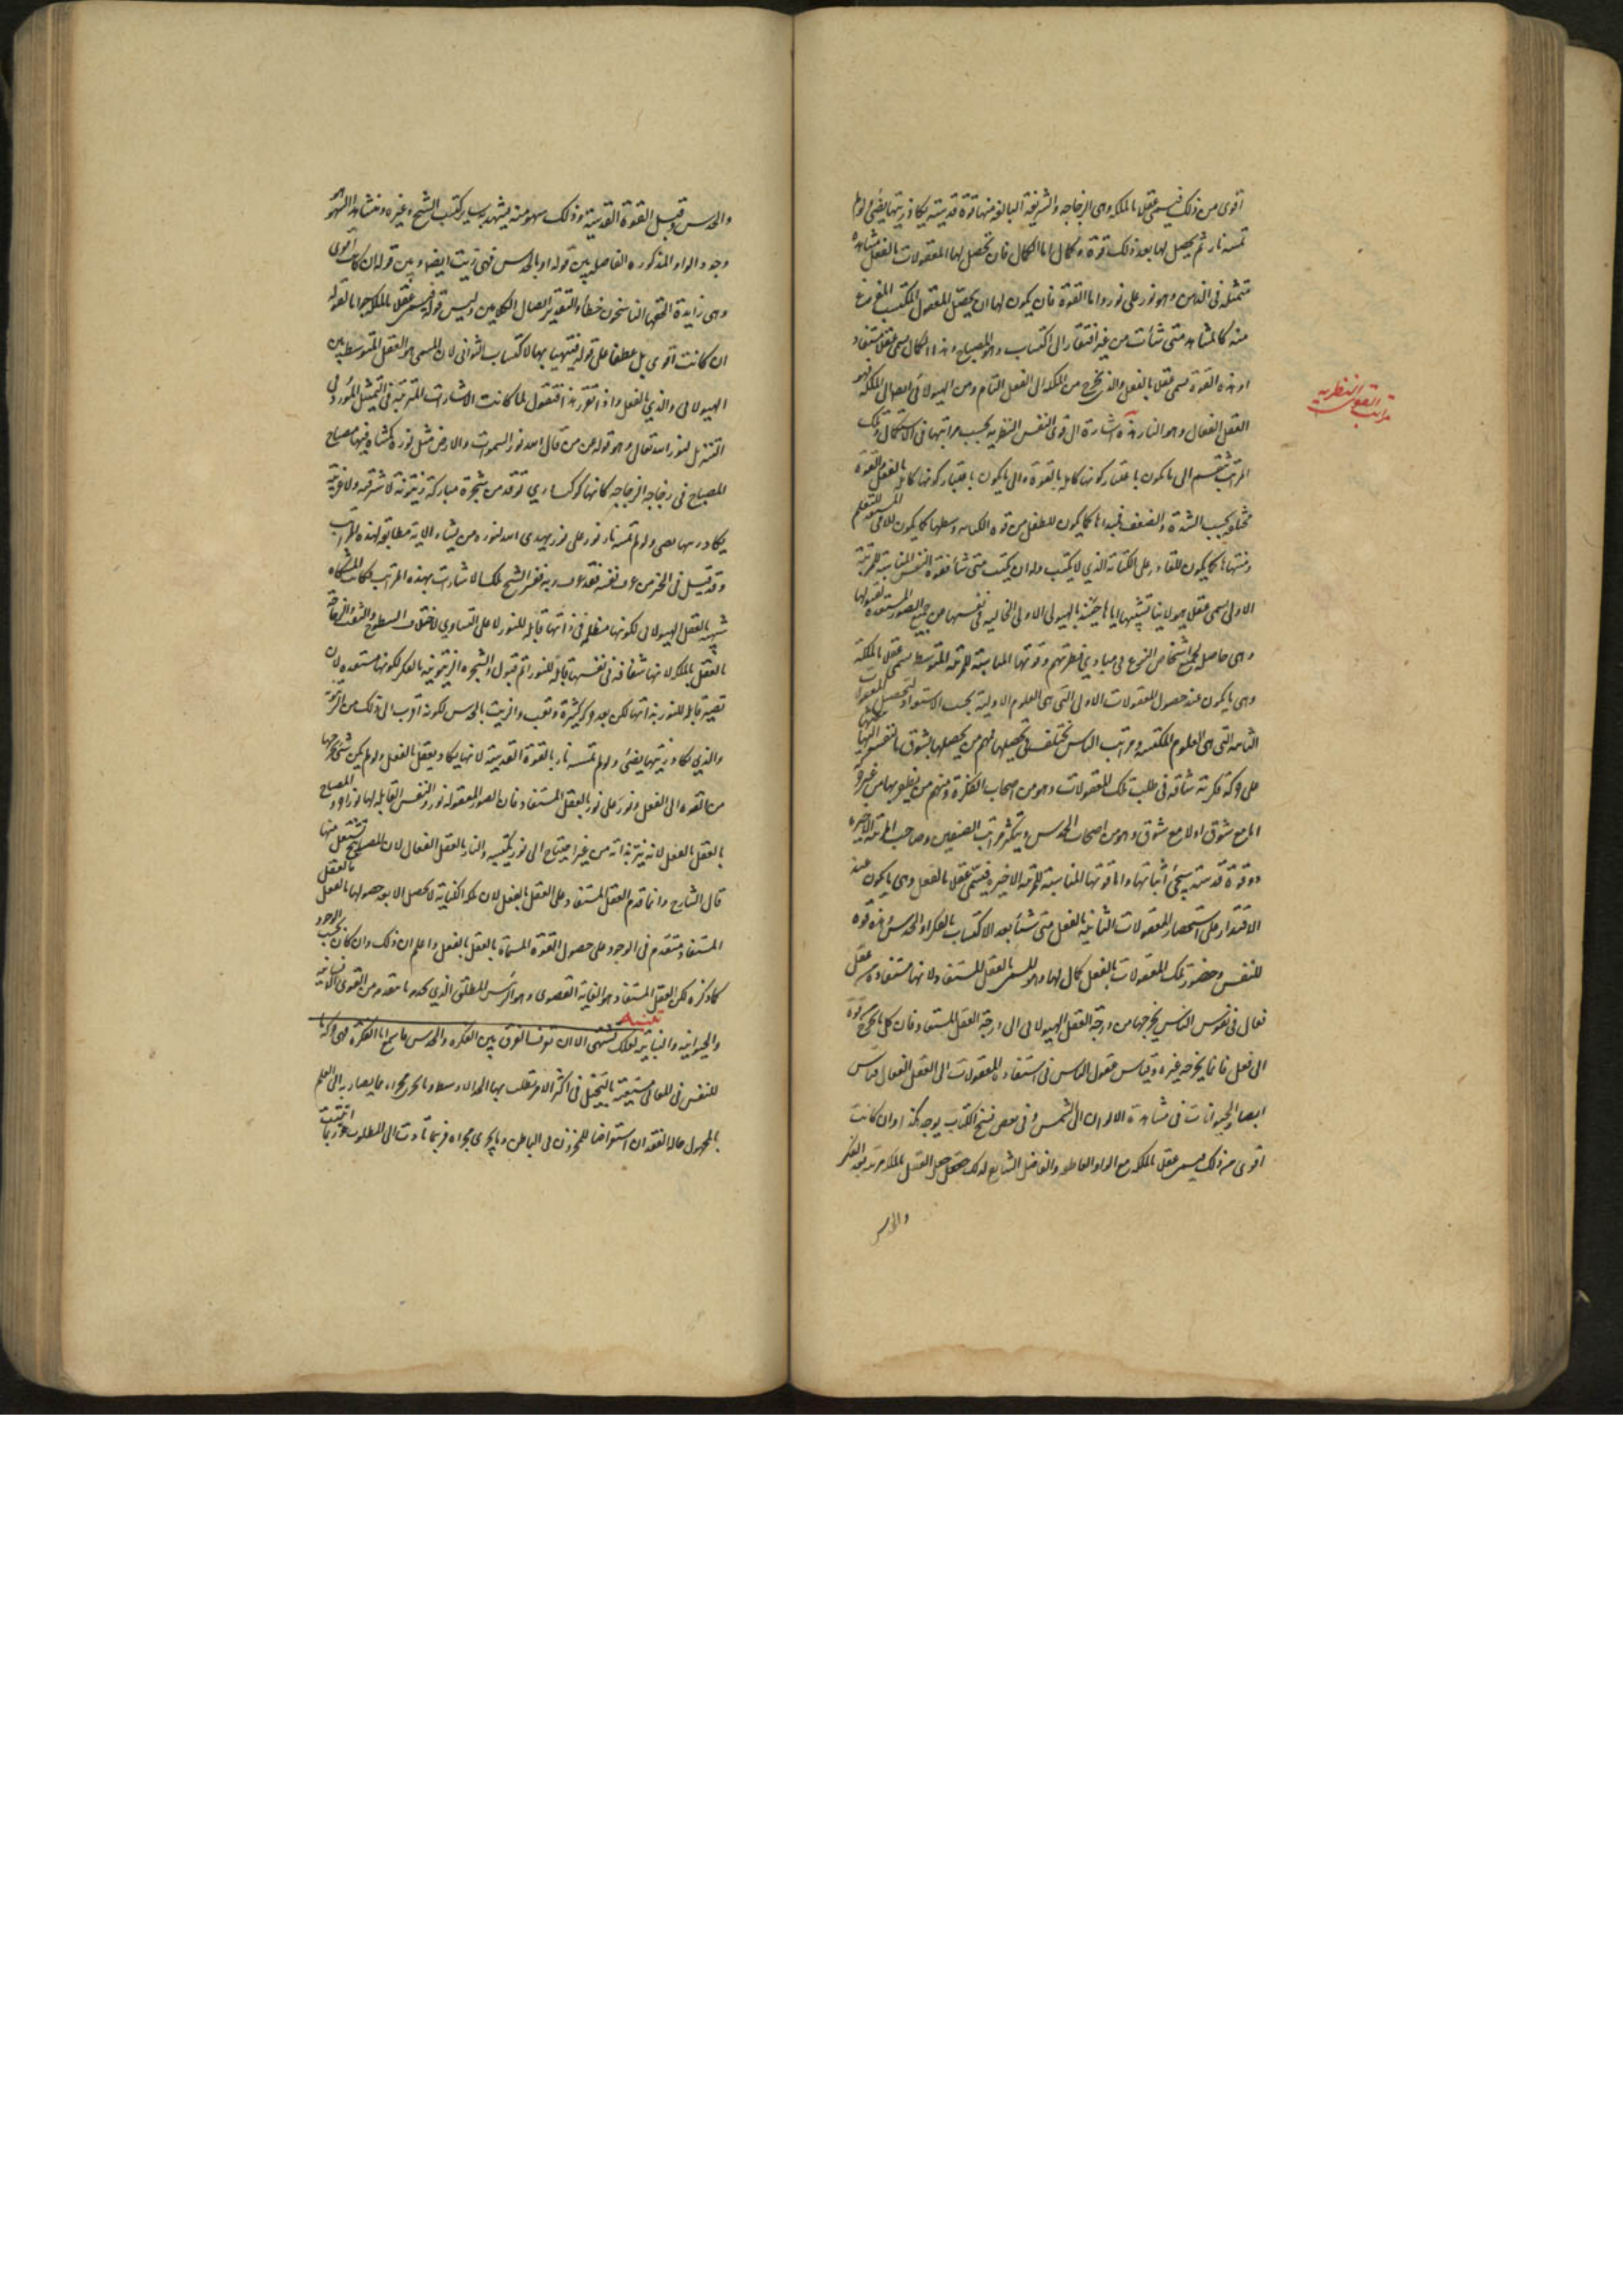 اقوى من ذلك فيسمى عقلا بالملكه وهى الزجاجه والشريفة البالغه منها قوة قدسية يكاد زيتها يضئ ولو لم
تمسه نار ثم يحصل لها بعد ذلك قوة وكمال اما الكمال فان تحصل لها المعقولات بالفعل مشاهدة
متمثله فى الذهن وهو نور على نور واما القوة فان يكون لها ان يحصل المعقول المكتسب المفروغ
منه كالمشاهد متى شأت من غير افتقار الى اكتساب وهو المصباح وهذا الكمال يسمى عقلا مستفادا
وهذه القوة تسمى عقلا بالفعل والذى يخرج من الملكه الى الفعل التام ومن الهيولانى ايضا الى الملكه فهو
العقل الفعال وهو النار هذه اشارة الى قوى النفس النظرية بحسب مراتبها فى الاستكمال وتلك
المراتب تنقسم الى ما يكون باعتبار كونها كامله بالقوة والى ما يكون باعتبار كونها كامله بالفعل والقوة
مختلفه بحسب الشدة والضعف فمبداها كما يكون للطفل من قوة الكتابه ووسطها كما يكون للامى المستعد للتعلم
ومنتهاها كما يكون للقادر على الكتابة الذى لا يكتب وله ان يكتب متى شأ فقوة النفس المناسبة للمرتبة
الاولى تسمى عقلا هيولانيا تشبيها اياها حينئذ بالهيولى الاولى الخاليه فى نفسها من جميع الصور المستعدة لقبولها
وهى حاصله لجميع اشخاص النوع فى مبادى فطرتهم وقوتها المناسبة للمرتبة المتوسطه تسمى عقلا بالملكة
وهى ما يكون عند حصول المعقولات الاولى التى هى العلوم الاولية بحسب الاستعداد لتحصيل المعقولات
الثانيه التى هى العلوم المكتسبه ومراتب الناس تختلف فى تحصيلها فمنهم من يحصلها بشوق ما لنفسه اليها يبعثها
على حركة فكرية شاقه فى طلب تلك المعقولات وهو من اصحاب الفكرة ومنهم من يظفر بها من غير حركة
اما مع شوق اولا مع شوق وهو من اصحاب الحدس وتتكثر مراتب الصنفين وصاحب المرتبة الاخيرة
ذو قوة قدسية سيجئ اثباتها واما قوتها المناسبة للمرتبة الاخيرة فتسمى عقلا بالفعل وهى ما يكون عند
الاقتدار على استحضار المعقولات الثانية بالفعل متى شأ بعد الاكتساب بالفكر او الحدس وهذه قوة
للنفس وحضور تلك المعقولات بالفعل كمال لها وهو المسمى بالعقل المستفاد لانها مستفادة من عقل
فعال فى نفوس الناس يخرجها من درجة العقل الهيولانى الى درجة العقل المستفاد فان كل ما يخرج من قوة
الى فعل فانما يخرجه غيره وقياس عقول الناس فى استفادة المعقولات الى العقل الفعال قياس
ابصار الحيوانات فى مشاهدة الالوان الى الشمس وفى بعض نسخ الكتاب يوجد هكذا وان كانت
اقوى من ذلك فيسمى عقلا بالملكه مع الواو العاطفه والفاضل الشارح لذلك جعل العقل بالملكه مرتبة بعد الفكر
والحدس
مراتب القوى النظرية
والحدس وقبل القوة القدسية وذلك سهو منه يشهد به سائر كتب الشيخ وغيره ومنشأ هذا السهو
وجود الواو المذكوره الفاصله بين قوله او بالحدس فهى زيت ايضا وبين قوله ان كانت اقوى
وهى زايدة الحقها الناسخون خطأ والتقدير اتصال الكلامين وليس قوله فيسمى عقلا بالملكه جوابا لقوله
ان كانت اقوى بل عطفا على قوله فتتهيا بها لاكتساب الثوانى لان المسمى هو العقل المتوسط بين
الهيولانى والذى بالفعل واذا تقرر هذا فنقول لما كانت الاشارات المترتبة فى التمثيل المورد فى
التنزيل لنور الله تعالى وهو قوله عز من قائل الله نور السموات والارض مثل نوره كمشكاة فيها مصباح
المصباح فى زجاجه الزجاجه كانها كوكب درى توقد من شجرة مباركة زيتونة لا شرقيه ولا غربية
يكاد زيتها يضى ولو لم تمسه نار نور على نور يهدى الله لنوره من يشاء الاية مطابقه لهذه المراتب
وقد قيل فى الخبر من عرف نفسه فقد عرف ربه فسر الشيخ تلك الاشارات بهذه المراتب فكانت المشكاه
شبيهه بالعقل الهيولانى لكونها مظلمه فى ذاتها قابله للنور لا على التساوى لاختلاف السطوح والثقب والزجاجة
بالعقل بالملكه لانها شفافه فى نفسها قابله للنور اتم قبول والشجره الزيتونة بالفكر لكونها مستعدة لان
تصير قابله للنور بذاتها لكن بعد حركة كثيرة وتعب والزيت بالحدس لكونه اقرب الى ذلك من الزيتونة
والذى يكاد زيتها يضئ ولو لم تمسسه نار بالقوة القدسية لانها يكاد يعقل بالفعل ولو لم يكن شئ يخرجها
من القوه الى الفعل ونور على نور بالعقل المستفاد فان الصور المعقوله نور والنفس القابله لها نور اخر والمصباح
بالعقل بالفعل لانه نير بذاته من غير احتياج الى نور يكتسبه والنار بالعقل الفعال لان المصابيح تشتعل منها
قال الشارح وانما قدم العقل المستفاد على العقل بالفعل لان ملكه اكتفائية لا تحصل الا بعد حصولها بالفعل بالعقل
المستفاد متقدم فى الوجود على حصول القوة المسماة بالعقل بالفعل واعلم ان ذلك وان كان بحسب الوجود
كما ذكره لكن العقل المستفاد هو الغاية القصوى وهو الرئيس المطلق الذى يخدمه ما تقدمه من القوى الانسانية
والحيوانيه والنباتية تنبيه لعلك تشتهى الان ان تعرف الفرق بين الفكره والحدس فاسمع اما الفكرة فهى حركة ما
للنفس فى المعانى مستعينة بالتخيل فى اكثر الامر تطلب بها الحد الاوسط وما يجرى مجراه مما يصار به الى العلم
بالمجهول حاله الفقدان استعراضا للمخزون فى الباطن وما يجرى مجراه فربما تأدت الى المطلوب وربما انبتت